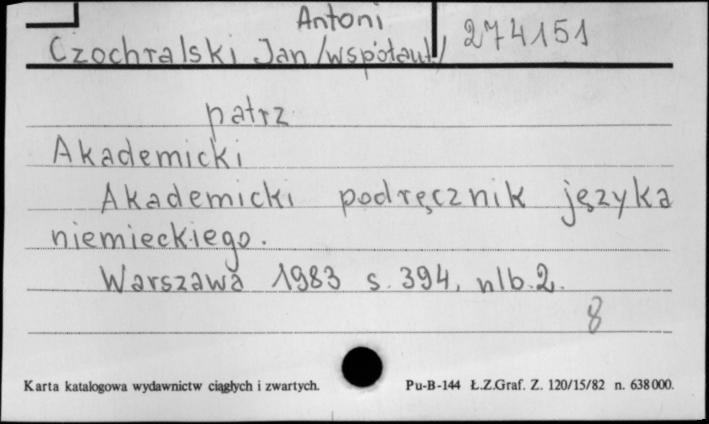 Antoni
Czochralski Jan /współaut/ 274151
patrz
Akademicki
Akademicki podręcznik języka
niemieckiego.
Warszawa 1983 s. 394, nlb. 2.
8
Karta katalogowa wydawnictw ciągłych i zwartych. Pu-B-144 Ł.Z.Graf. Z. 120/15/82 n. 638000.